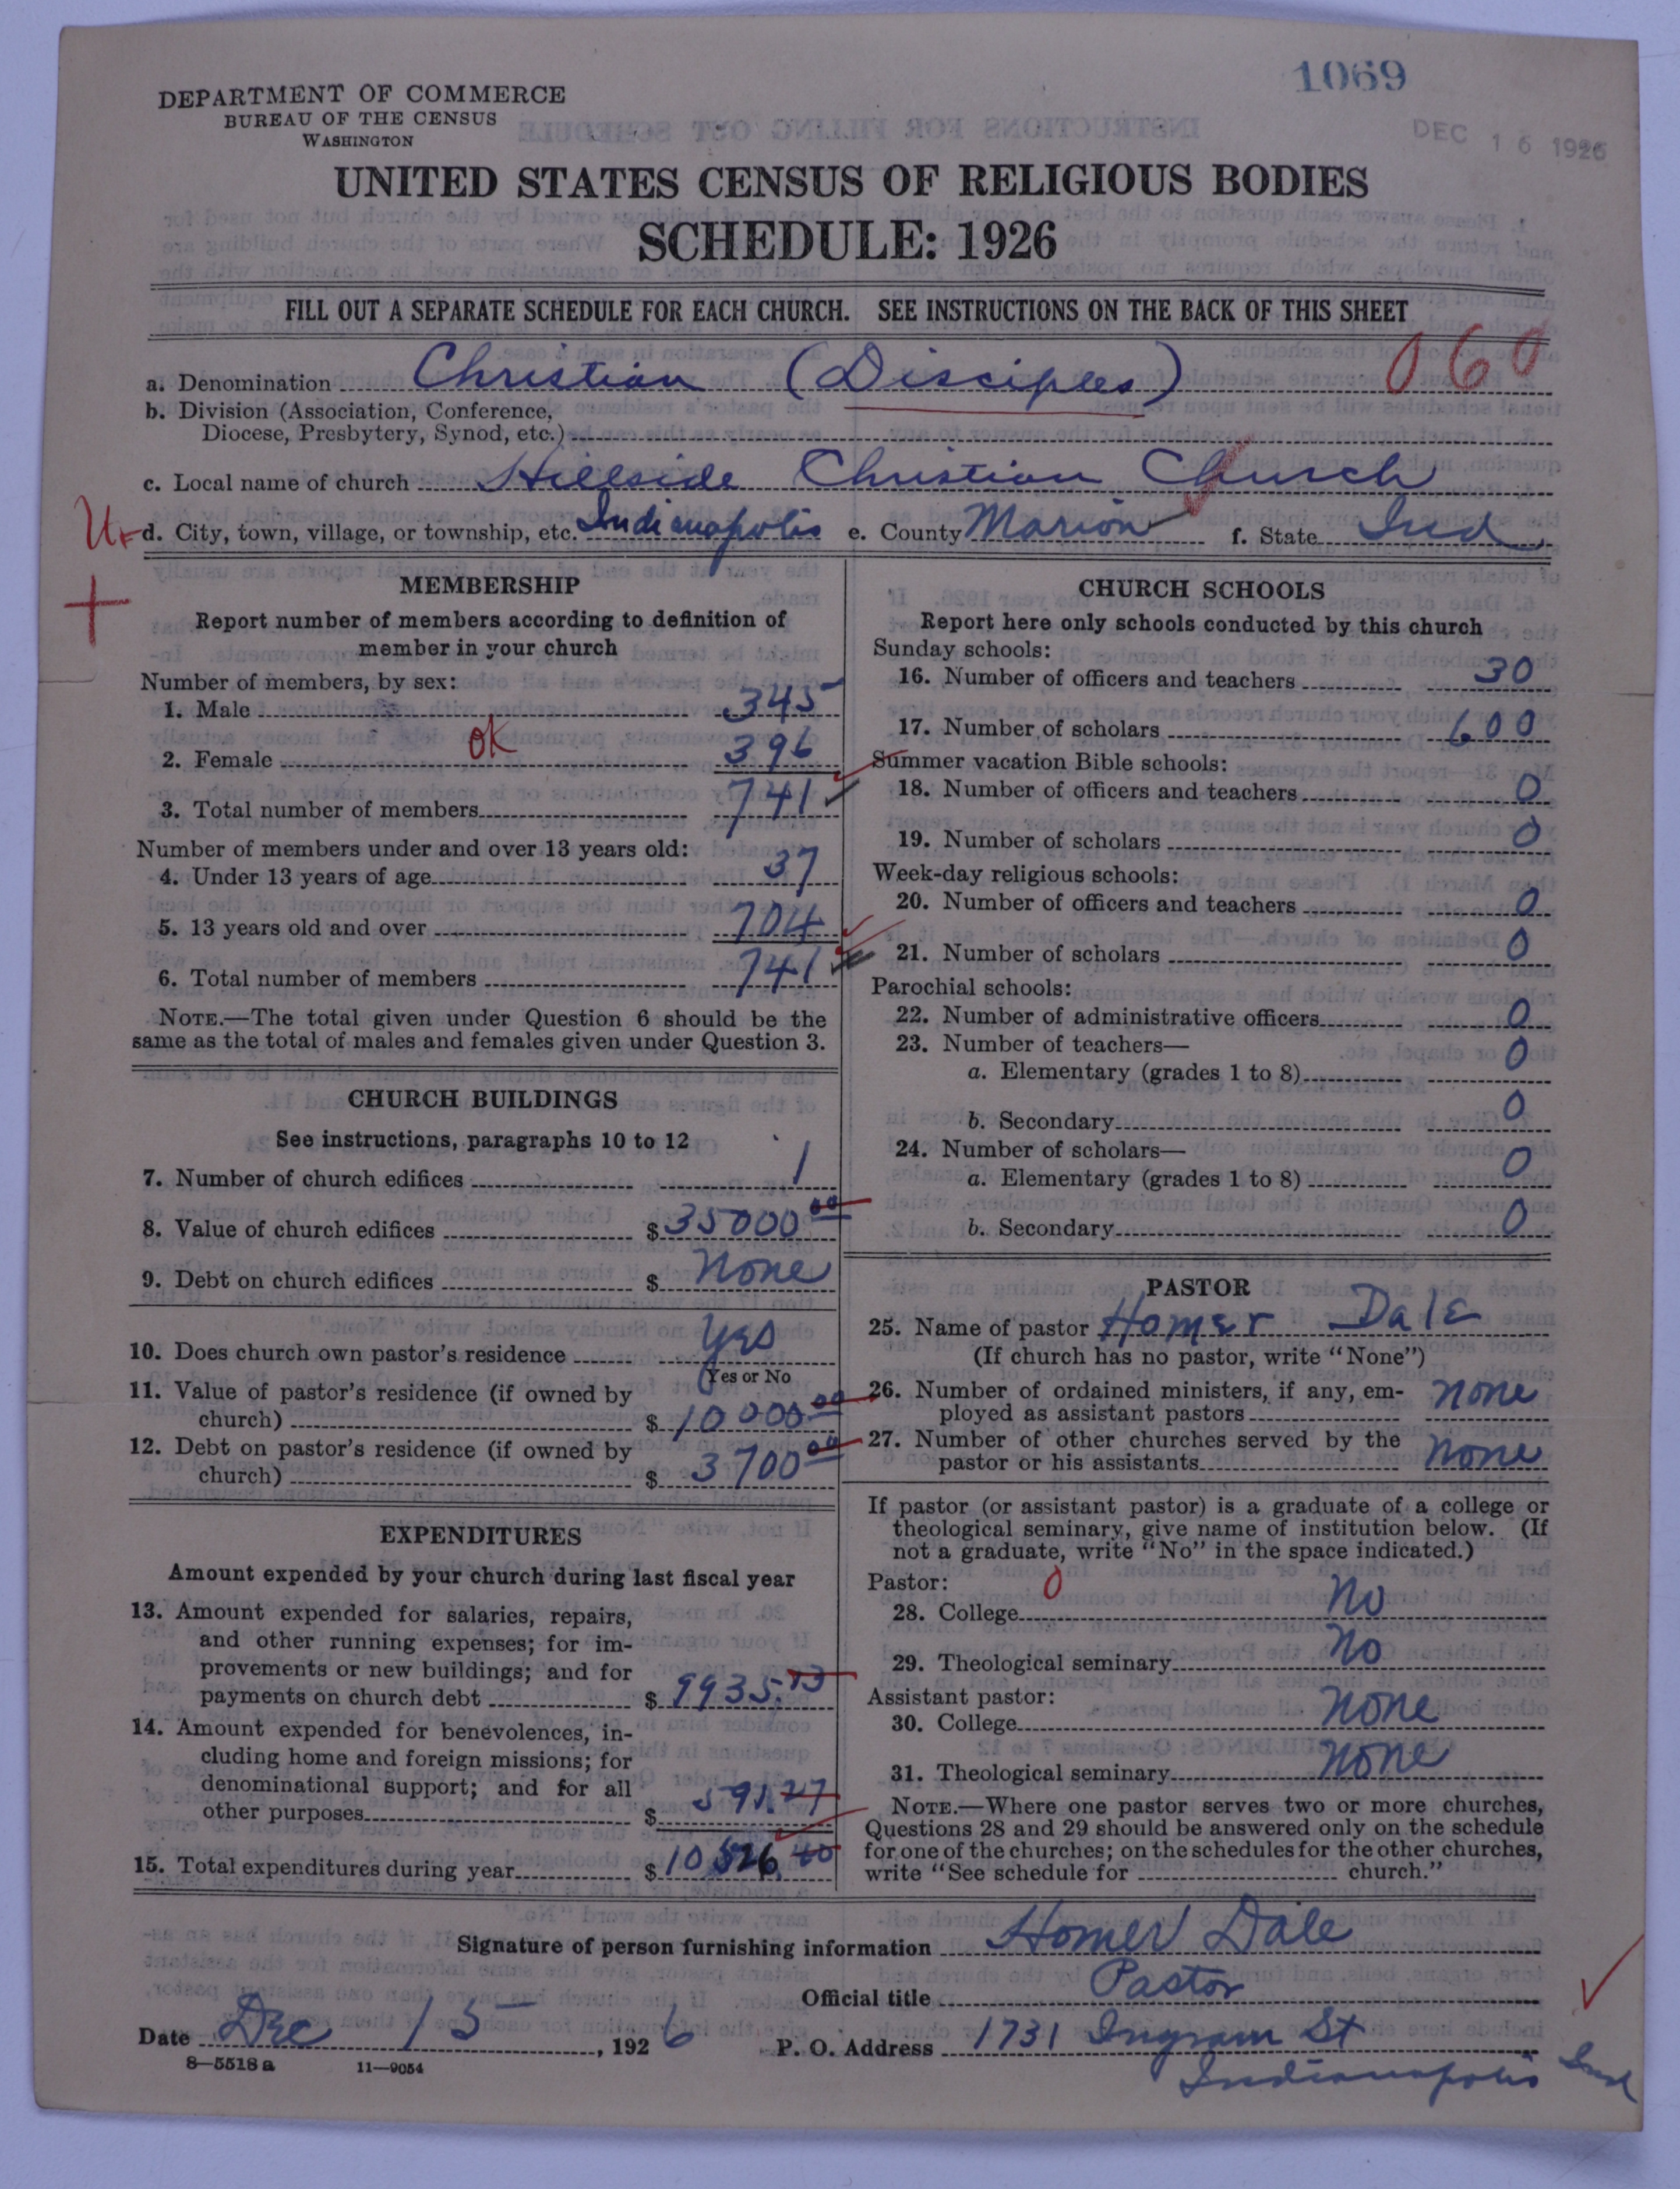 1069
DEC 16 1926
DEPARTMENT OF COMMERCE
BUREAU OF THE CENSUS
WASHINGTON
UNITED STATES CENSUS OF RELIGIOUS BODIES
SCHEDULE: 1926
FILL OUT A SEPARATE SCHEDULE FOR EACH CHURCH. SEE INSTRUCTIONS ON THE BACK OF THIS SHEET
a. Denomination Christian (Disciples) 060
b. Division (Association, Conference,
Diocese, Presbytery, Synod, etc.)
c. Local name of church Hillside Christian Church
d. City, town, village, or township, etc. Indianapolis e. County Marion f. State Ind
MEMBERSHIP
Report number of members according to definition of
member in your church
Number of members, by sex:
1. Male 345
OK
2. Female 396
3. Total number of members 741
Number of members under and over 13 years old:
4. Under 13 years of age 37
5. 13 years old and over 704
6. Total number of members 741
NOTE.—The total given under Question 6 should be the
same as the total of males and females given under Question 3.
CHURCH BUILDINGS
See instructions, paragraphs 10 to 12
7. Number of church edifices 1
8. Value of church edifices $ 35000 00
9. Debt on church edifices $ None
10. Does church own pastor's residence Yes
Yes or No
11. Value of pastor's residence (if owned by
church) $ 10000 00
12. Debt on pastor's residence (if owned by
church) $ 3700 00
EXPENDITURES
Amount expended by your church during last fiscal year
13. Amount expended for salaries, repairs,
and other running expenses; for im-
provements or new buildings; and for
payments on church debt $ 9935.13
14. Amount expended for benevolences, in-
cluding home and foreign missions; for
denominational support; and for all
other purposes $ 591.27
15. Total expenditures during year $ 10526.40
CHURCH SCHOOLS
Report here only schools conducted by this church
Sunday schools:
16. Number of officers and teachers 30
17. Number of scholars 600
Summer vacation Bible schools:
18. Number of officers and teachers 0
19. Number of scholars 0
Week-day religious schools:
20. Number of officers and teachers 0
21. Number of scholars 0
Parochial schools:
22. Number of administrative officers 0
23. Number of teachers—
a. Elementary (grades 1 to 8) 0
b. Secondary 0
24. Number of scholars—
a. Elementary (grades 1 to 8) 0
b. Secondary 0
PASTOR
25. Name of pastor Homer Dale
(If church has no pastor, write "None")
26. Number of ordained ministers, if any, em-
ployed as assistant pastors none
27. Number of other churches served by the
pastor or his assistants none
If pastor (or assistant pastor) is a graduate of a college or
theological seminary, give name of institution below. (If
not a graduate, write "No" in the space indicated.)
Pastor: 0
28. College No
29. Theological seminary No
Assistant pastor:
30. College None
31. Theological seminary None
NOTE.—Where one pastor serves two or more churches,
Questions 28 and 29 should be answered only on the schedule
for one of the churches; on the schedules for the other churches,
write "See schedule for church."
Signature of person furnishing information Homer Dale
Official title Pastor
Date Dec 15, 1926 P. O. Address 1731 Ingram St
Indianapolis Ind
8—5518a 11—9054